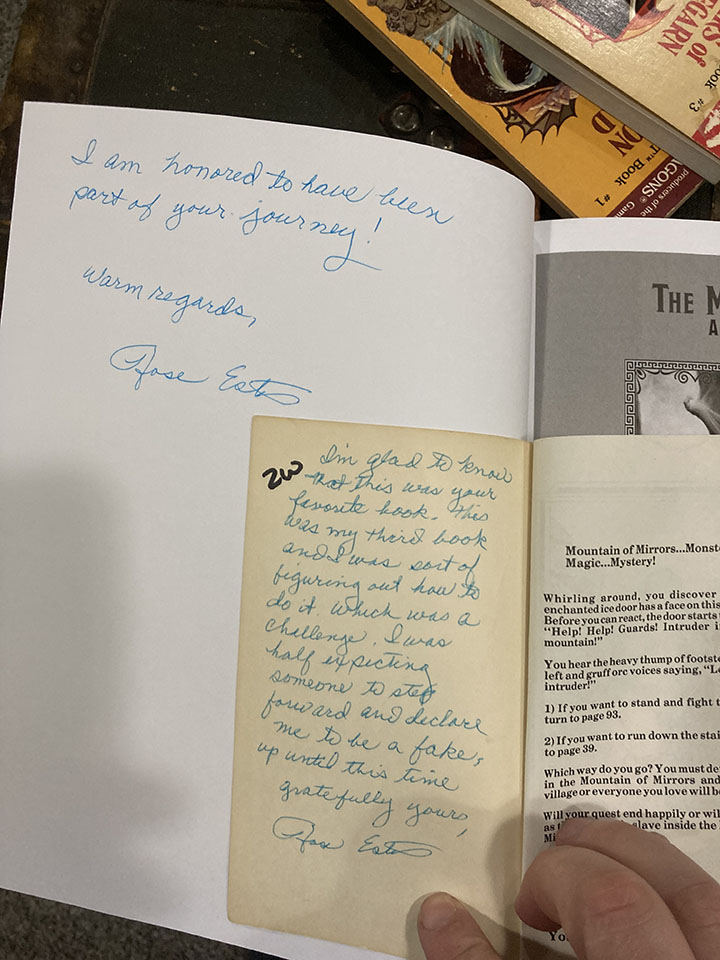 I am honored to have been
part of your journey!
Warm regards,
Rose Estes
2W
I'm glad to know
that this was your
favorite book. This
was my third book
and I was sort of
figuring out how to
do it. Which was a
challenge. I was
half expecting
someone to step
forward and declare
me to be a fake,
up until this time
gratefully yours,
Rose Estes
OF
GGARN
Book #3
ON
D
T™ Book #1
AGONS®
producers of the
Gam
THE M
A
Mountain of Mirrors...Monst
Magic...Mystery!
Whirling around, you discover
enchanted ice door has a face on this
Before you can react, the door starts
"Help! Help! Guards! Intruder i
mountain!"
You hear the heavy thump of footste
left and gruff orc voices saying, "Le
intruder!"
1) If you want to stand and fight t
turn to page 93.
2) If you want to run down the stai
to page 39.
Which way do you go? You must de
in the Mountain of Mirrors and
village or everyone you love will b
Will your quest end happily or wil
as slave inside the
Mi
Yo